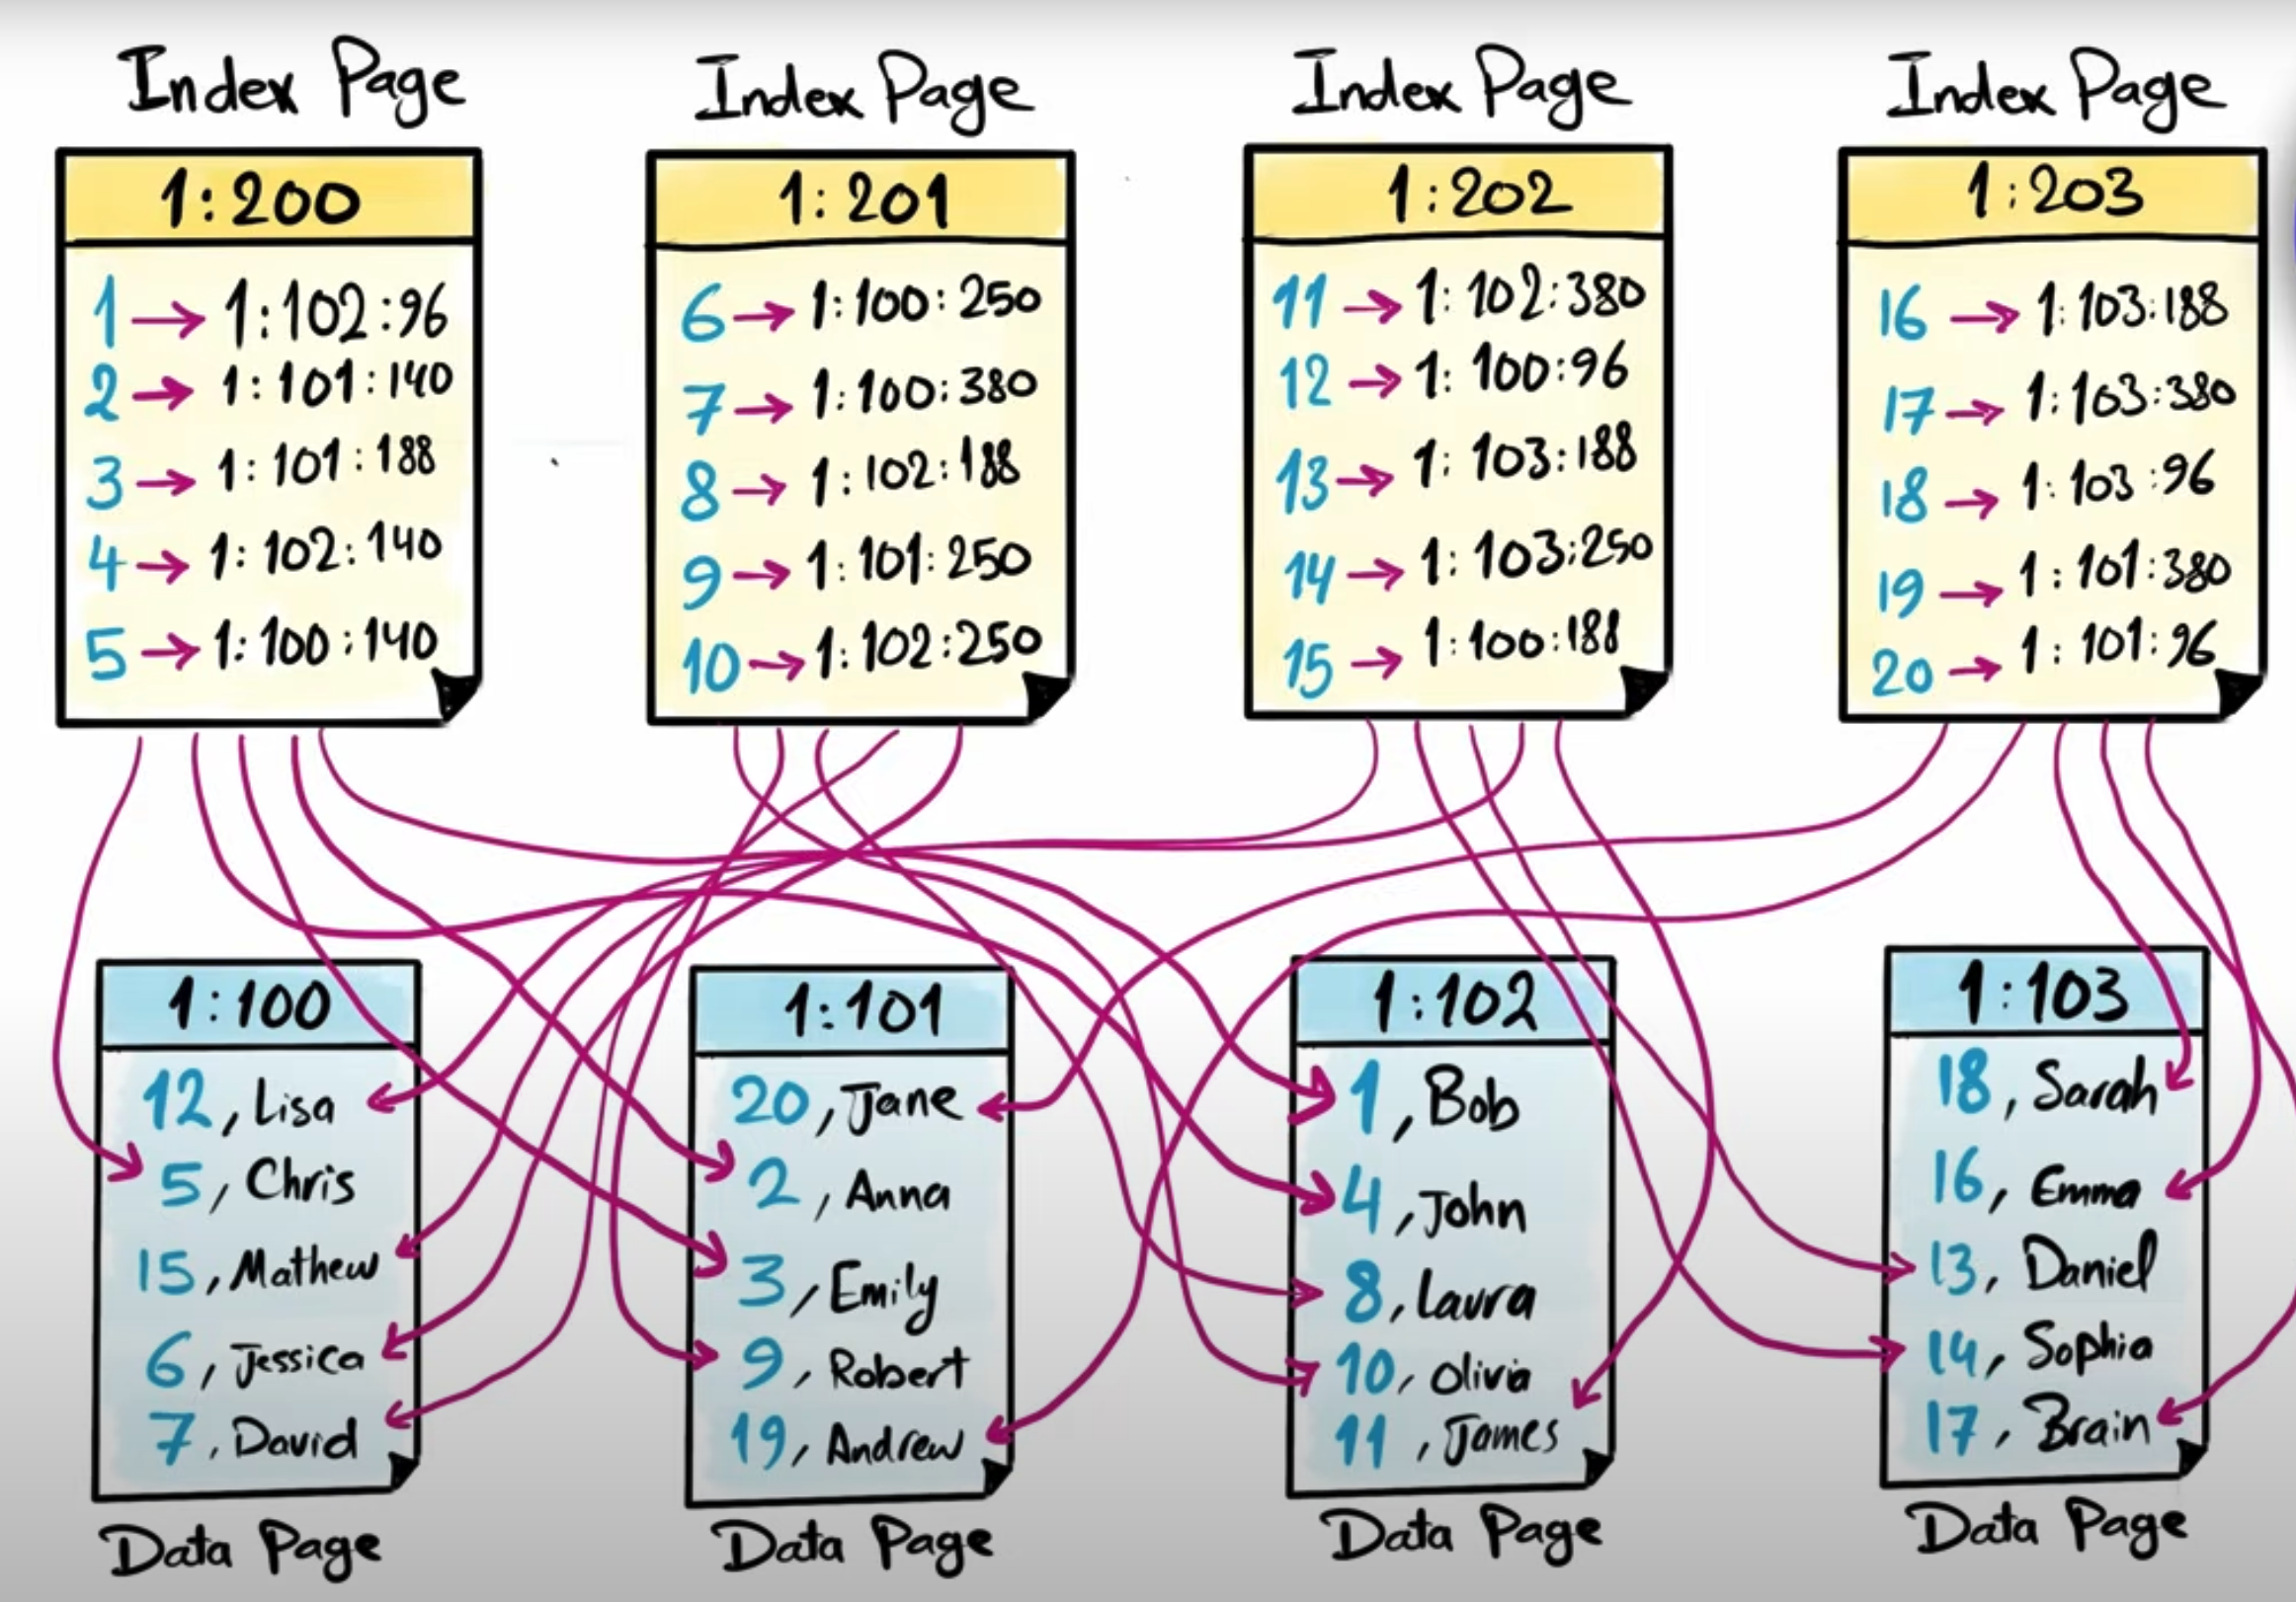 Index Page
1:200
1 → 1:102:96
2 → 1:101:140
3 → 1:101:188
4 → 1:102:140
5 → 1:100:140
Index Page
1:201
6 → 1:100:250
7 → 1:100:380
8 → 1:102:188
9 → 1:101:250
10 → 1:102:250
Index Page
1:202
11 → 1:102:380
12 → 1:100:96
13 → 1:103:188
14 → 1:103:250
15 → 1:100:188
Index Page
1:203
16 → 1:103:188
17 → 1:103:380
18 → 1:103:96
19 → 1:101:380
20 → 1:101:96
1:100
12, Lisa
5, Chris
15, Mathew
6, Jessica
7, David
Data Page
1:101
20, Jane
2, Anna
3, Emily
9, Robert
19, Andrew
Data Page
1:102
1, Bob
4, John
8, Laura
10, Olivia
11, James
Data Page
1:103
18, Sarah
16, Emma
13, Daniel
14, Sophia
17, Brain
Data Page